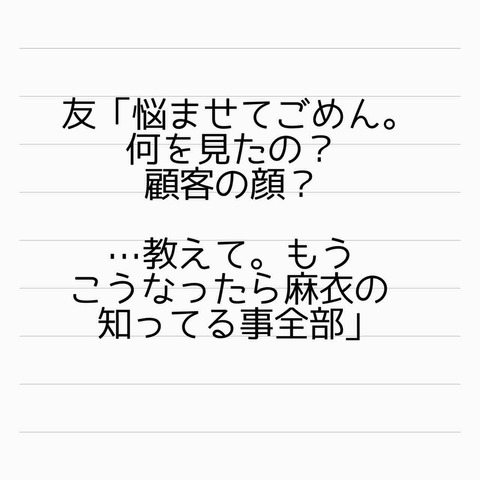 友「悩ませてごめん。
何を見たの？
顧客の顔？
…教えて。もう
こうなったら麻衣の
知ってる事全部」